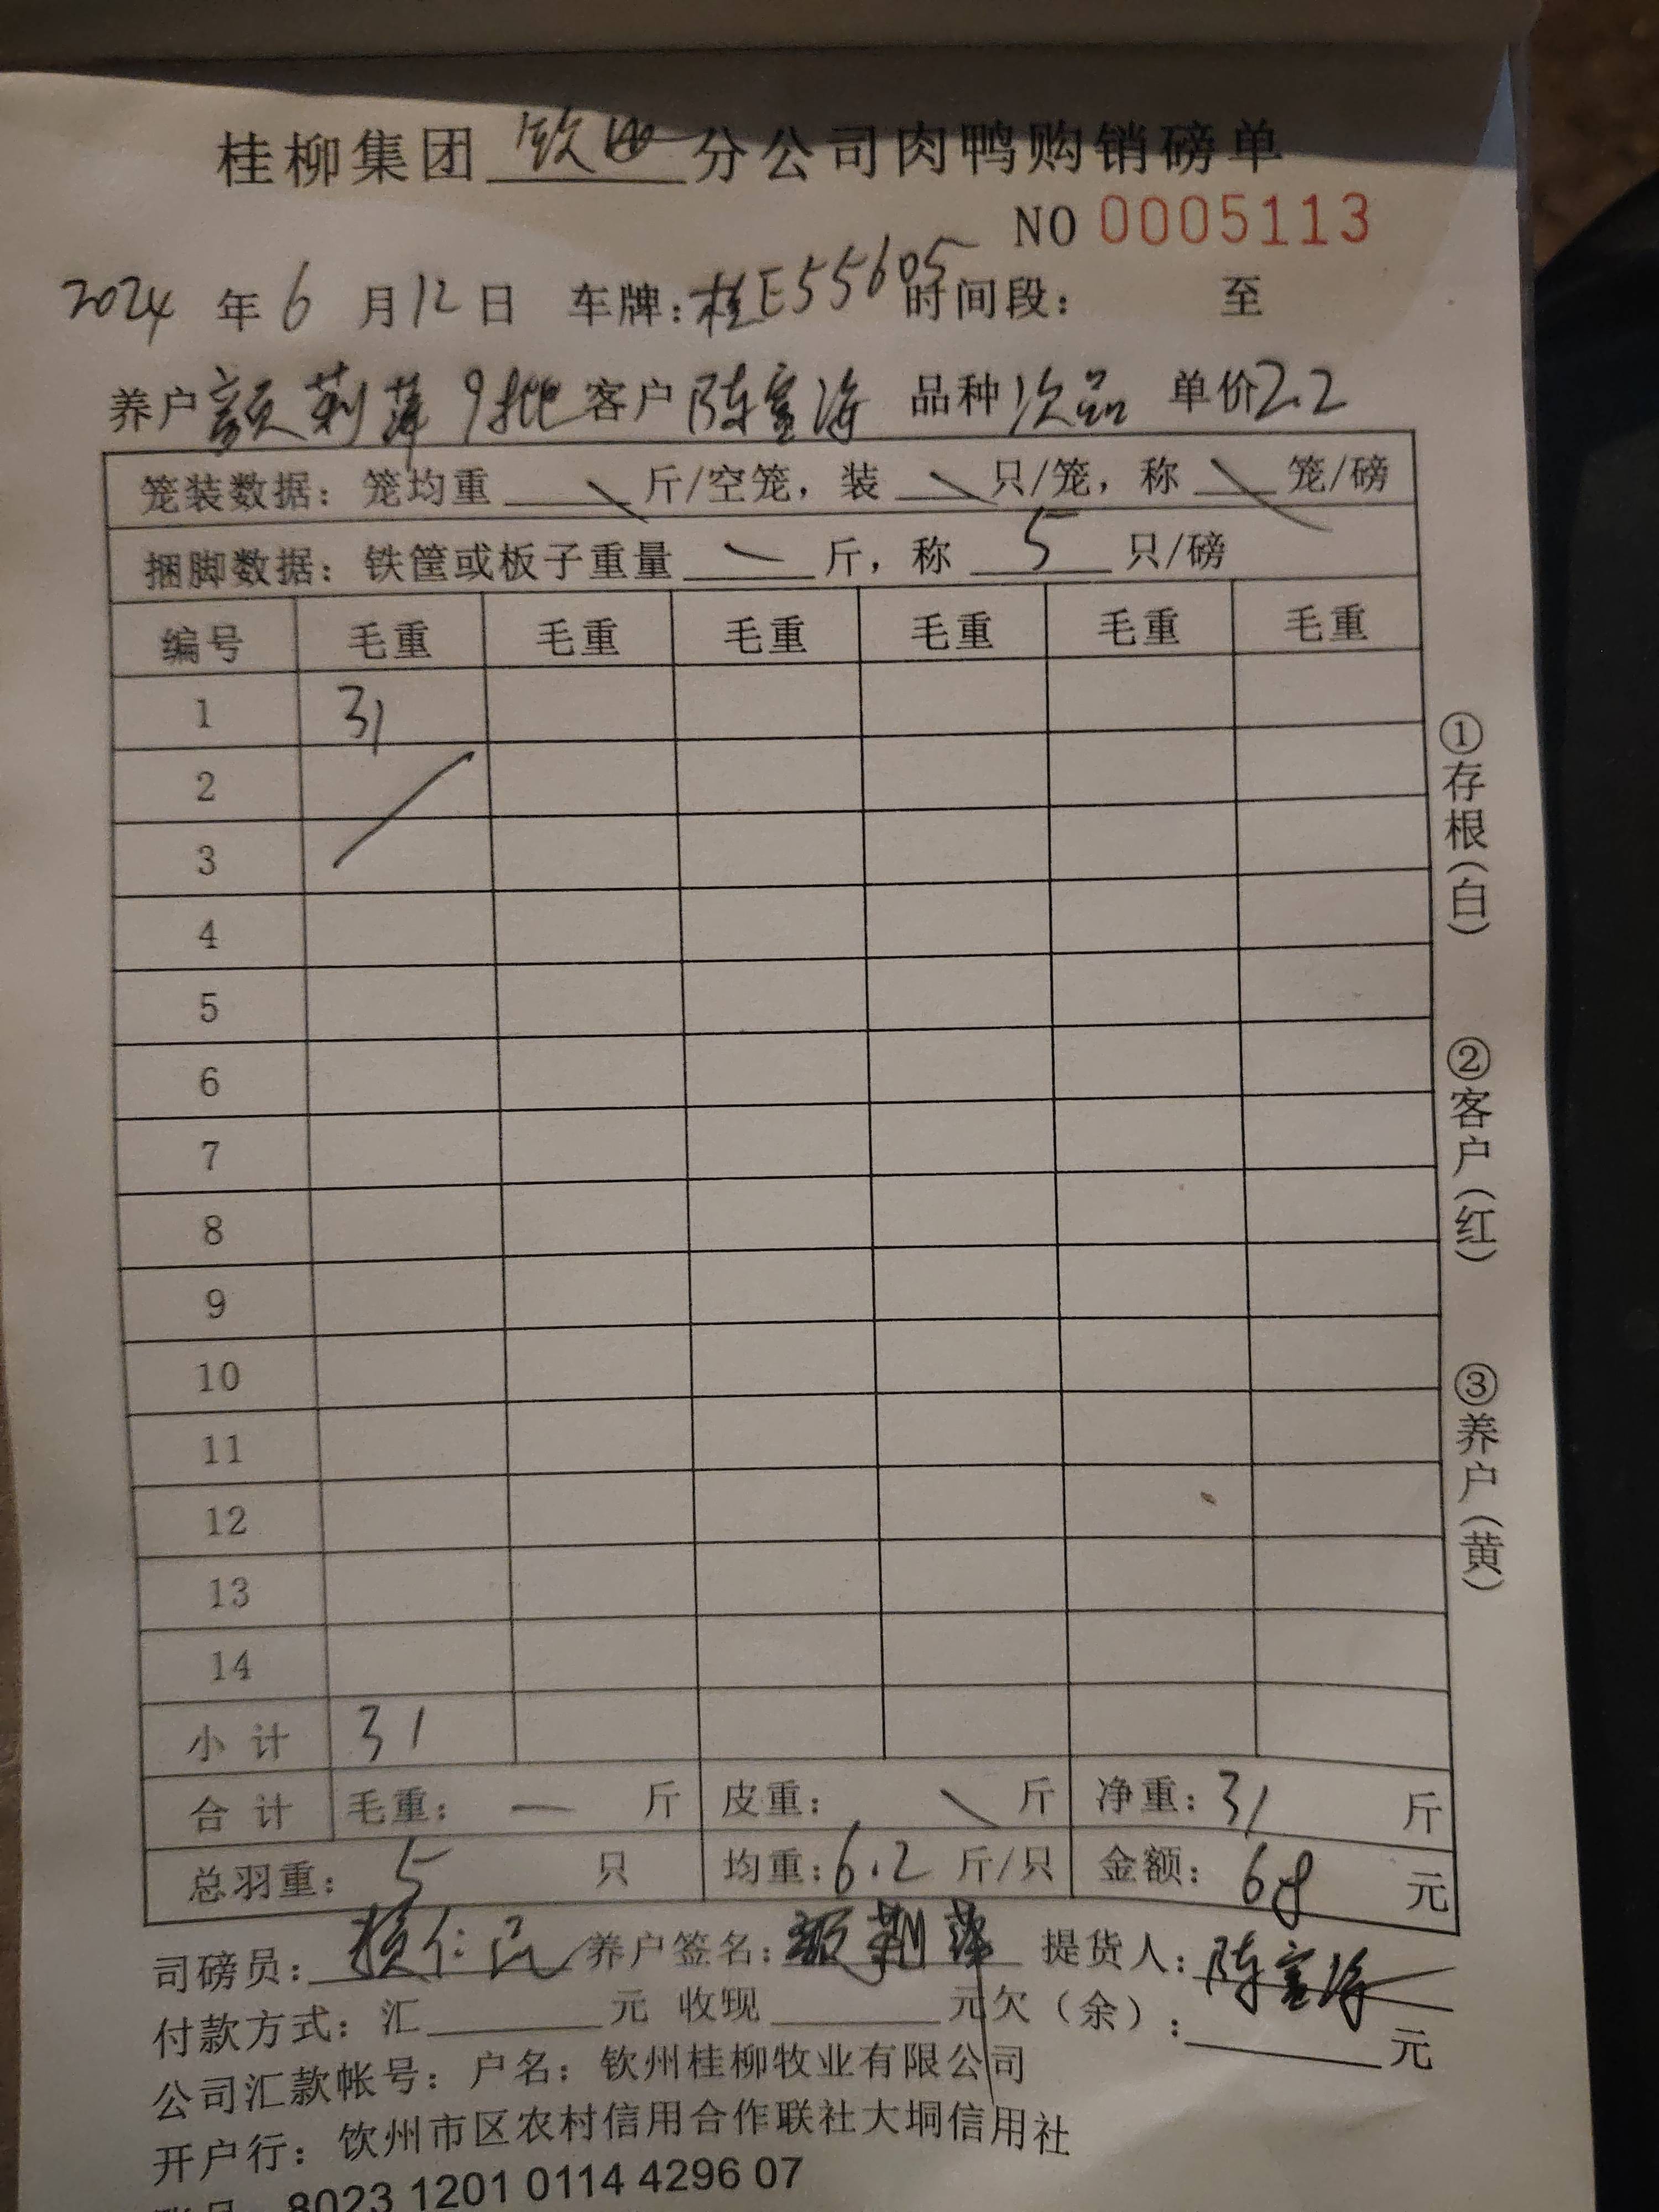 桂柳集团 钦州 分公司肉鸭购销磅单
NO 0005113
2024 年 6 月 12 日 车牌：桂E55605 时间段： 至
养户 颜莉萍 9批 客户 陈富海 品种 次品 单价 2.2
笼装数据：笼均重 斤/空笼，装 只/笼，称 笼/磅
捆脚数据：铁筐或板子重量 斤，称 5 只/磅
编号 毛重 毛重 毛重 毛重 毛重 毛重
1 31
2
3
4
5
6
7
8
9
10
11
12
13
14
小计 31
合计 毛重： 一 斤 皮重： 斤 净重：31 斤
总羽重： 5 只 均重：6.2 斤/只 金额：68 元
司磅员： 仁民 养户签名：颜莉萍 提货人：陈富海
付款方式：汇 元 收现 元 欠（余）： 元
公司汇款帐号：户名：钦州桂柳牧业有限公司
开户行：钦州市区农村信用合作联社大垌信用社
8023 1201 0114 4296 07
①存根（白）
②客户（红）
③养户（黄）